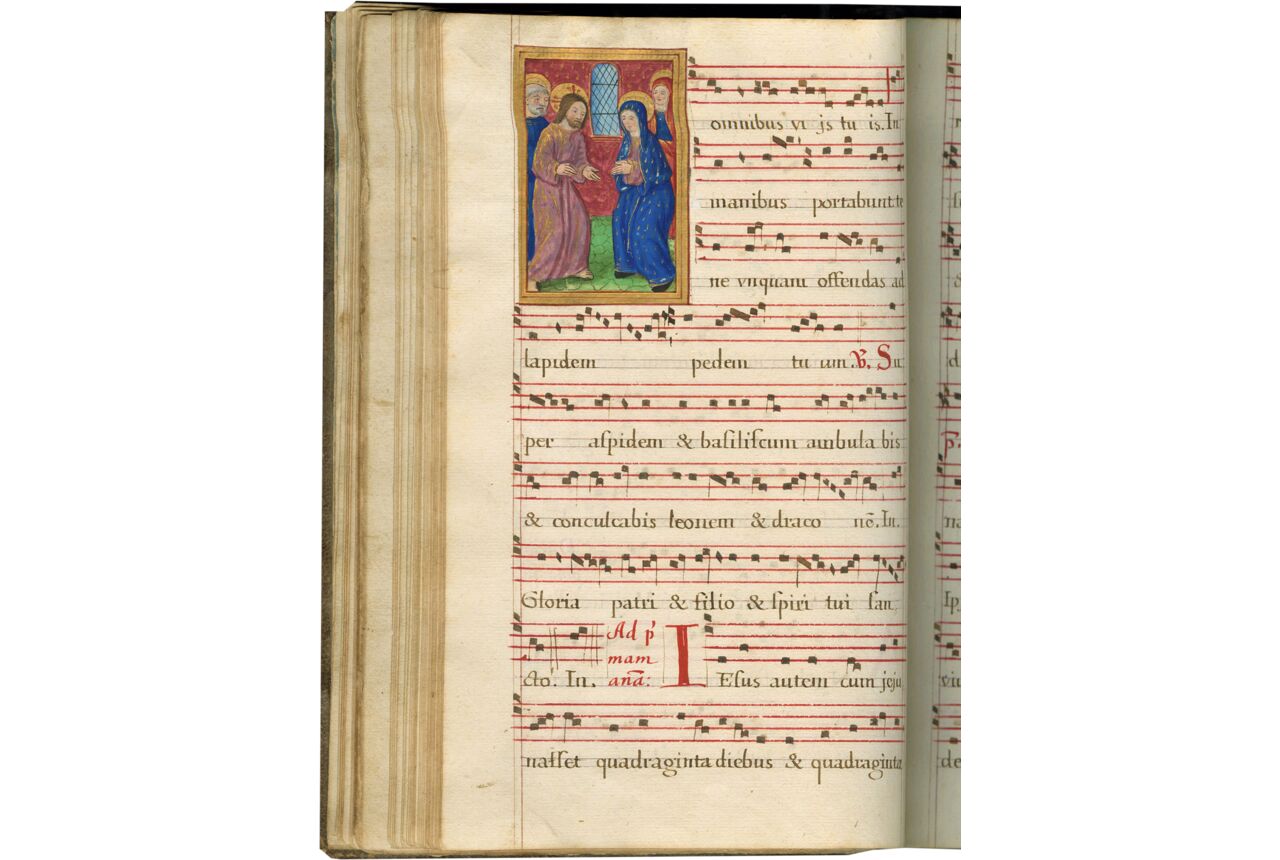 omnibus vi js tu is. In
manibus portabunt te
ne vnquam offendas ad
lapidem pedem tu um. ℣. Su
per aſpidem & baſiliſcum ambula bis
& conculcabis leonem & draco nē. In.
Gloria patri & filio & ſpiri tui ſan
cto. In. Ad p̄
mam
anā: I Eſus autem cum jeju
naſſet quadraginta diebus & quadraginta